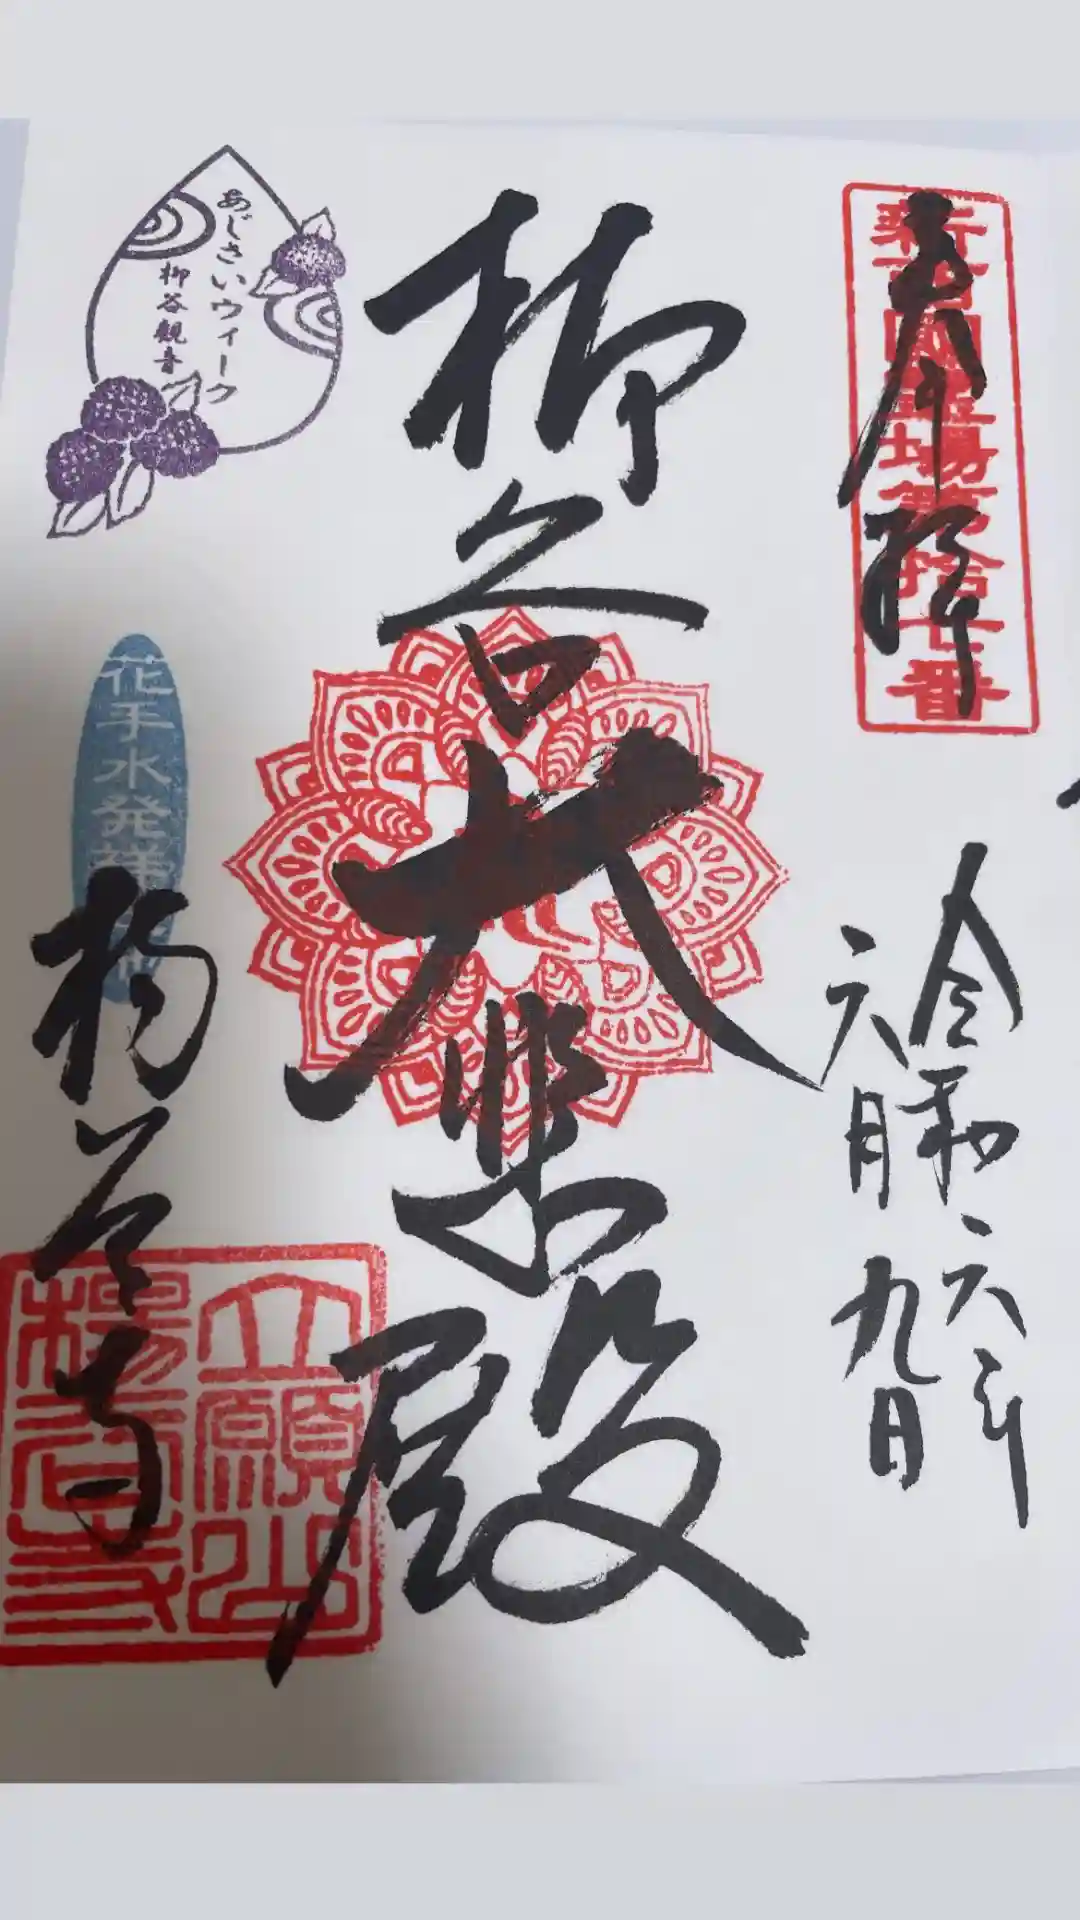 奉拝
新西国霊場第拾七番
令和六年
六月九日
柳谷大悲殿
あじさいウィーク
柳谷観音
花手水発祥
楊谷寺
立願山
楊谷寺